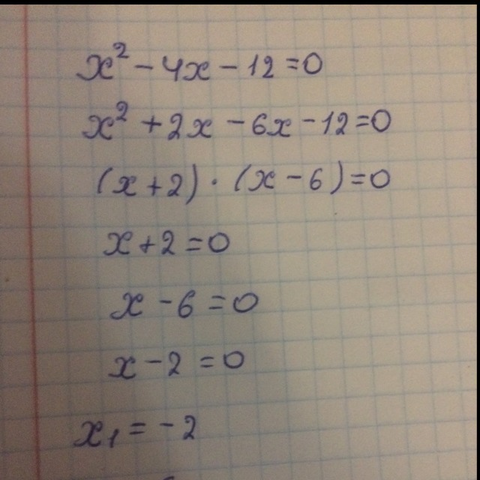 x² - 4x - 12 = 0
x² + 2x - 6x - 12 = 0
(x + 2) · (x - 6) = 0
x + 2 = 0
x - 6 = 0
x - 2 = 0
x₁ = -2